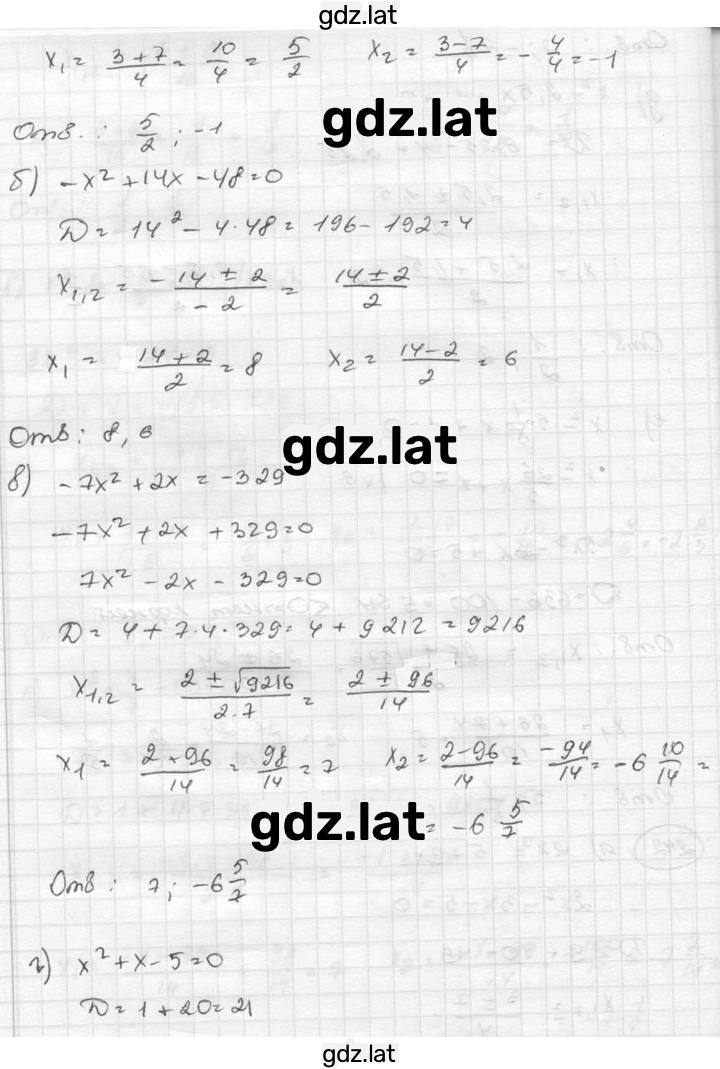 gdz.lat
x₁ = (3+7)/4 = 10/4 = 5/2   x₂ = (3-7)/4 = -4/4 = -1
gdz.lat
Отв.: 5/2; -1
б) -x² + 14x - 48 = 0
D = 14² - 4·48 = 196 - 192 = 4
x₁,₂ = (-14 ± 2)/(-2) = (14 ± 2)/2
x₁ = (14+2)/2 = 8   x₂ = (14-2)/2 = 6
Отв: 8, 6
gdz.lat
в) -7x² + 2x = -329
-7x² + 2x + 329 = 0
7x² - 2x - 329 = 0
D = 4 + 7·4·329 = 4 + 9212 = 9216
x₁,₂ = (2 ± √9216)/(2·7) = (2 ± 96)/14
x₁ = (2+96)/14 = 98/14 = 7   x₂ = (2-96)/14 = -94/14 = -6 10/14 =
gdz.lat
= -6 5/7
Отв: 7; -6 5/7
г) x² + x - 5 = 0
D = 1 + 20 = 21
gdz.lat